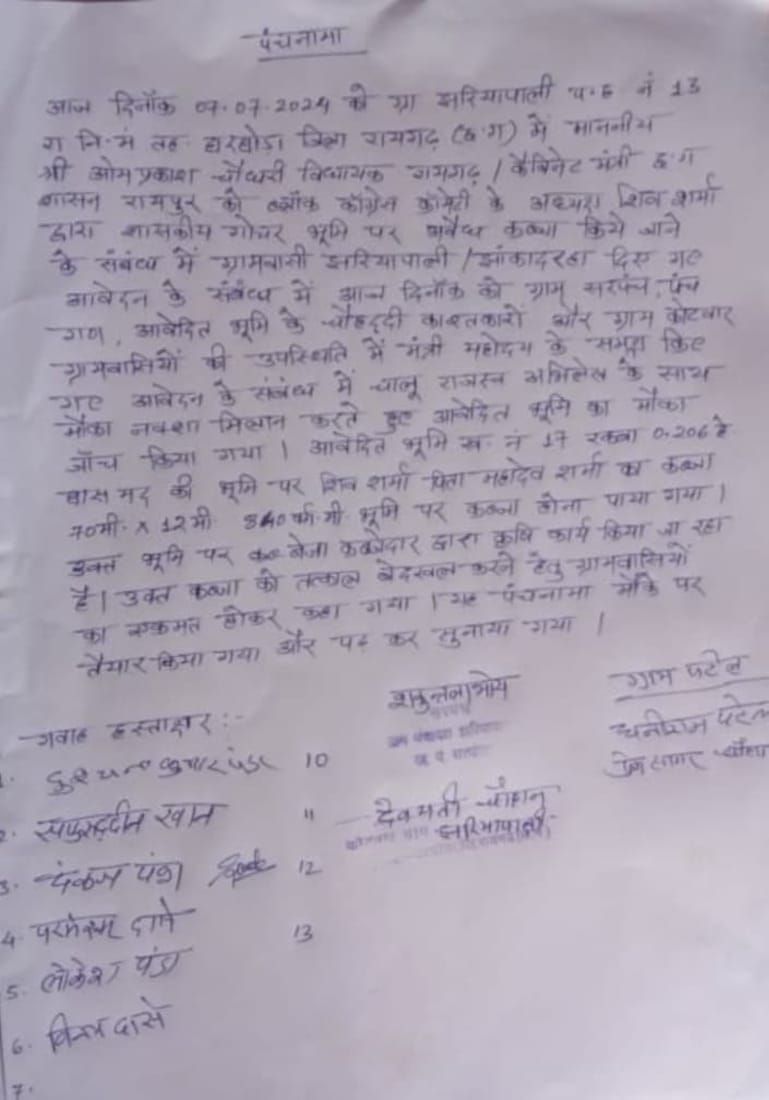 पंचनामा
आज दिनाँक 07.07.2024 को ग्रा झरियापाली प.ह नं 13
रा नि.मं तह. जिला रायगढ़ (छ.ग) में माननीय
श्री ओमप्रकाश चौधरी विधायक रायगढ़ / कैबिनेट मंत्री छ.ग
शासन रायपुर को ब्लॉक काँग्रेस कमेटी के अध्यक्ष शिव शर्मा
द्वारा शासकीय गोचर भूमि पर अवैध कब्जा किये जाने
के संबंध में ग्रामवासी झरियापाली / दिए गए
आवेदन के संबंध में आज दिनाँक को ग्राम सरपंच, पंच
गण, आवेदित भूमि के चौहद्दी काश्तकारों और ग्राम कोटवार
ग्रामवासियों की उपस्थिति में मंत्री महोदय के समक्ष किए
गए आवेदन के संबंध में चालू राजस्व अभिलेख के साथ
मौका नक्शा मिलान करते हुए आवेदित भूमि का मौका
जाँच किया गया । आवेदित भूमि ख. नं 17 रकबा 0.206 हे
घास मद की भूमि पर शिव शर्मा पिता महादेव शर्मा का कब्जा
70मी. x 12मी 840 वर्ग.मी भूमि पर कब्जा होना पाया गया ।
उक्त भूमि पर कब्जेदार द्वारा कृषि कार्य किया जा रहा
है। उक्त कब्जा को तत्काल बेदखल करने हेतु ग्रामवासियों
का एकमत होकर कहा गया । यह पंचनामा मौके पर
तैयार किया गया और पढ़ कर सुनाया गया ।
गवाह हस्ताक्षर :-
शकुन्तला भोय
सरपंच
ग्राम पटेल
धनीराम पटेल
प्रेमसागर
पंडा 10
2. खान 11
देवमती चौहान
झरियापाली
3. पंकज पंडा 12
4. 13
5. लोकेश पंडा
6. दास
7.